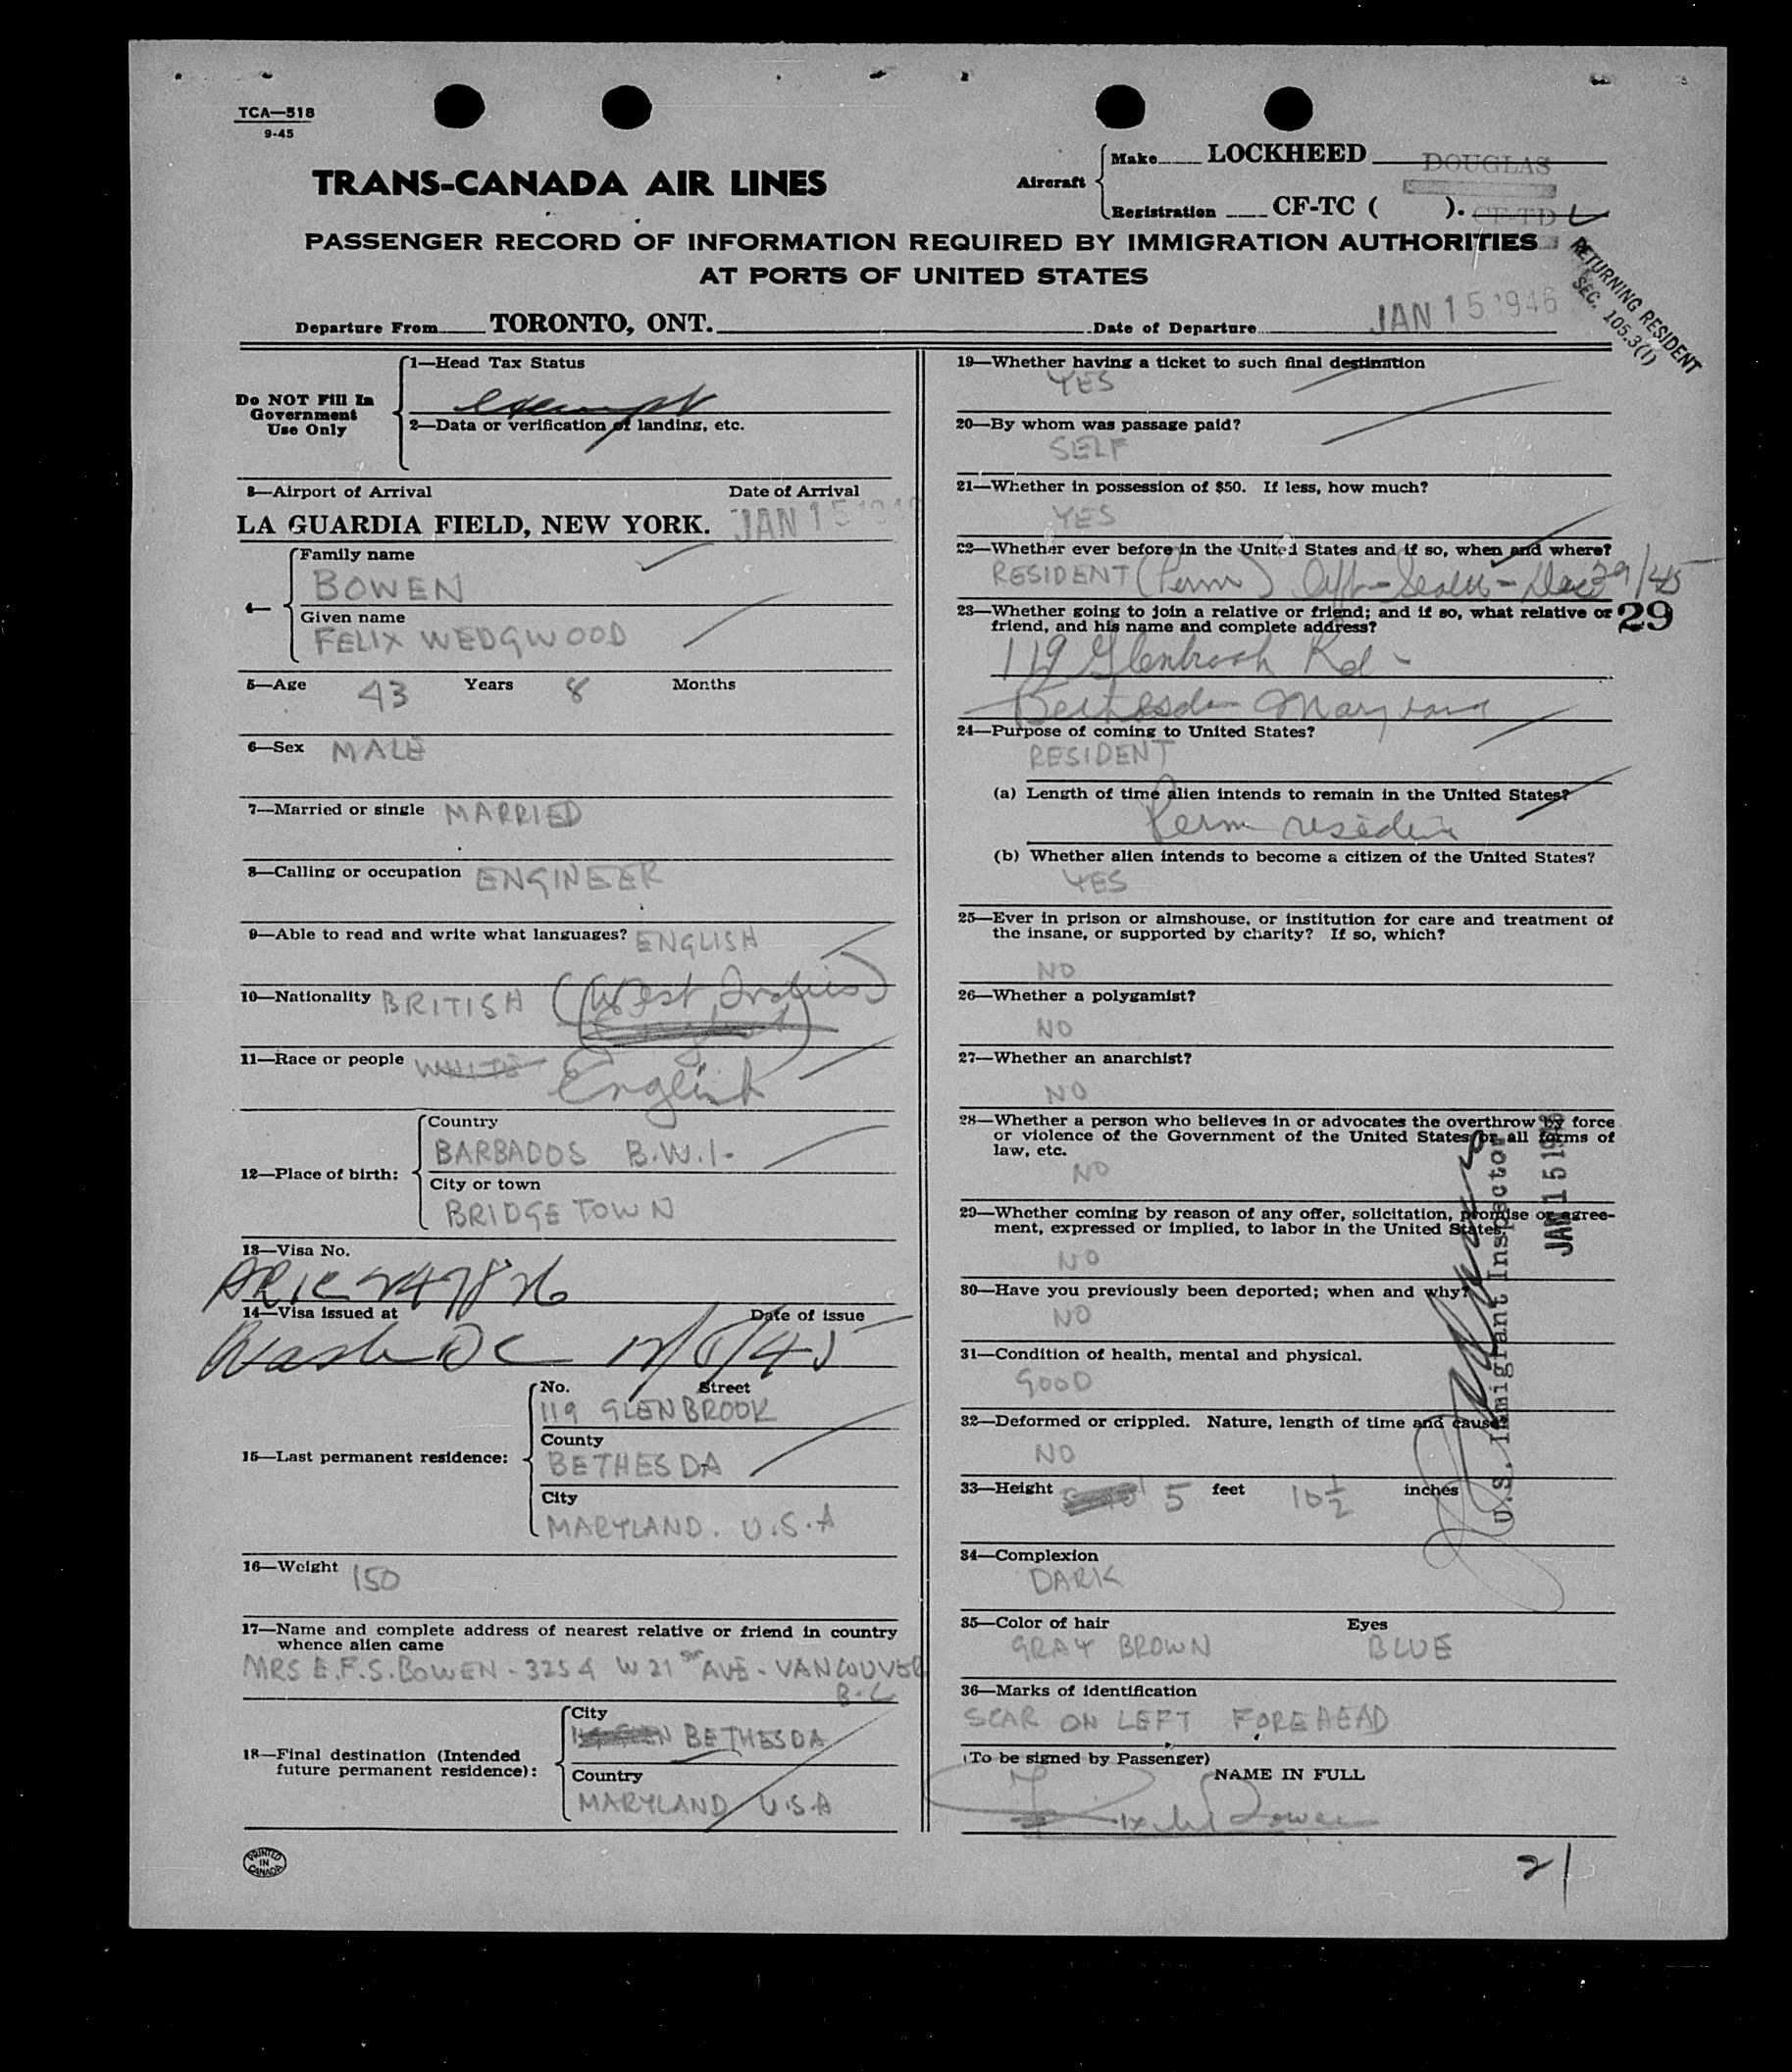 TCA—518
9-45
TRANS-CANADA AIR LINES
Aircraft
Make LOCKHEED DOUGLAS
Registration CF-TC ( ). CF-TD
PASSENGER RECORD OF INFORMATION REQUIRED BY IMMIGRATION AUTHORITIES
AT PORTS OF UNITED STATES
RETURNING RESIDENT
SEC. 105.3(1)
Departure From TORONTO, ONT. Date of Departure JAN 15 1946
Do NOT Fill In
Government
Use Only
1—Head Tax Status
exempt
2—Data or verification of landing, etc.
3—Airport of Arrival Date of Arrival
LA GUARDIA FIELD, NEW YORK. JAN 15 194
4—
Family name
BOWEN
Given name
FELIX WEDGWOOD
5—Age 43 Years 8 Months
6—Sex MALE
7—Married or single MARRIED
8—Calling or occupation ENGINEER
9—Able to read and write what languages? ENGLISH
10—Nationality BRITISH (West Indies)
11—Race or people WHITE English
12—Place of birth:
Country
BARBADOS B.W.I.
City or town
BRIDGETOWN
13—Visa No.
14—Visa issued at Date of issue
Wash DC
15—Last permanent residence:
No. Street
119 GLENBROOK
County
BETHESDA
City
MARYLAND. U.S.A
16—Weight 150
17—Name and complete address of nearest relative or friend in country
whence alien came
MRS E.F.S. BOWEN - 3254 W 21 ST AVE - VANCOUVER
B.C
18—Final destination (Intended
future permanent residence):
City
BETHESDA
Country
MARYLAND U.S.A
PRINTED
IN
CANADA
19—Whether having a ticket to such final destination
YES
20—By whom was passage paid?
SELF
21—Whether in possession of $50. If less, how much?
YES
22—Whether ever before in the United States and if so, when and where?
RESIDENT (Perm) left - - Dec 29/45
23—Whether going to join a relative or friend; and if so, what relative or
friend, and his name and complete address?
29
119 Glenbrook Rd -
Bethesda Maryland
24—Purpose of coming to United States?
RESIDENT
(a) Length of time alien intends to remain in the United States?
Perm residence
(b) Whether alien intends to become a citizen of the United States?
YES
25—Ever in prison or almshouse, or institution for care and treatment of
the insane, or supported by charity? If so, which?
NO
26—Whether a polygamist?
NO
27—Whether an anarchist?
NO
28—Whether a person who believes in or advocates the overthrow by force
or violence of the Government of the United States or all forms of
law, etc.
NO
29—Whether coming by reason of any offer, solicitation, promise or agree-
ment, expressed or implied, to labor in the United States.
NO
30—Have you previously been deported; when and why?
NO
31—Condition of health, mental and physical.
GOOD
32—Deformed or crippled. Nature, length of time and cause.
NO
33—Height 5 feet 10 1/2 inches
34—Complexion
DARK
35—Color of hair Eyes
GRAY BROWN BLUE
36—Marks of identification
SCAR ON LEFT FOREHEAD
(To be signed by Passenger)
NAME IN FULL
Felix W Bowen
U.S. Immigrant Inspector
JAN 15 1946
21